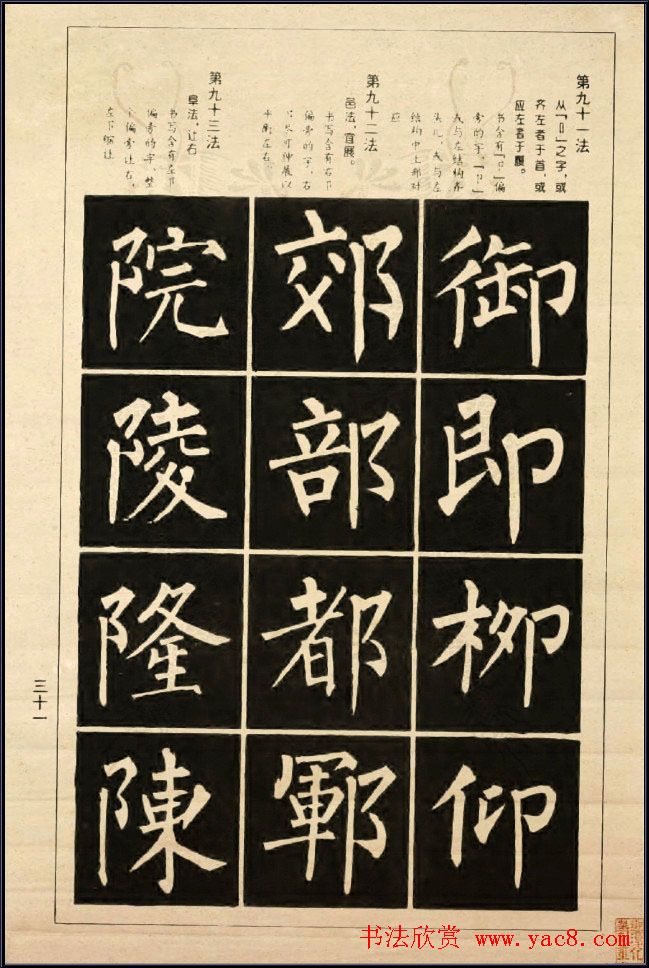 第九十一法
从「卩」之字，或
齐左者于首，或
应左者于腰。
书含有「卩」偏
旁的字，「卩」
或与左结构齐
头儿，或与左
结构中上部对
应
御
即
柳
仰
第九十二法
邑法，宜展。
书写含有右阝
偏旁的字，右
可伸展以
平衡左右。
郊
部
都
鄆
第九十三法
阜法，让右
书写含有左阝
偏旁的字，整
个偏旁让右，
左下缩让
院
陵
隆
陳
三十一
书法欣赏 www.yac8.com